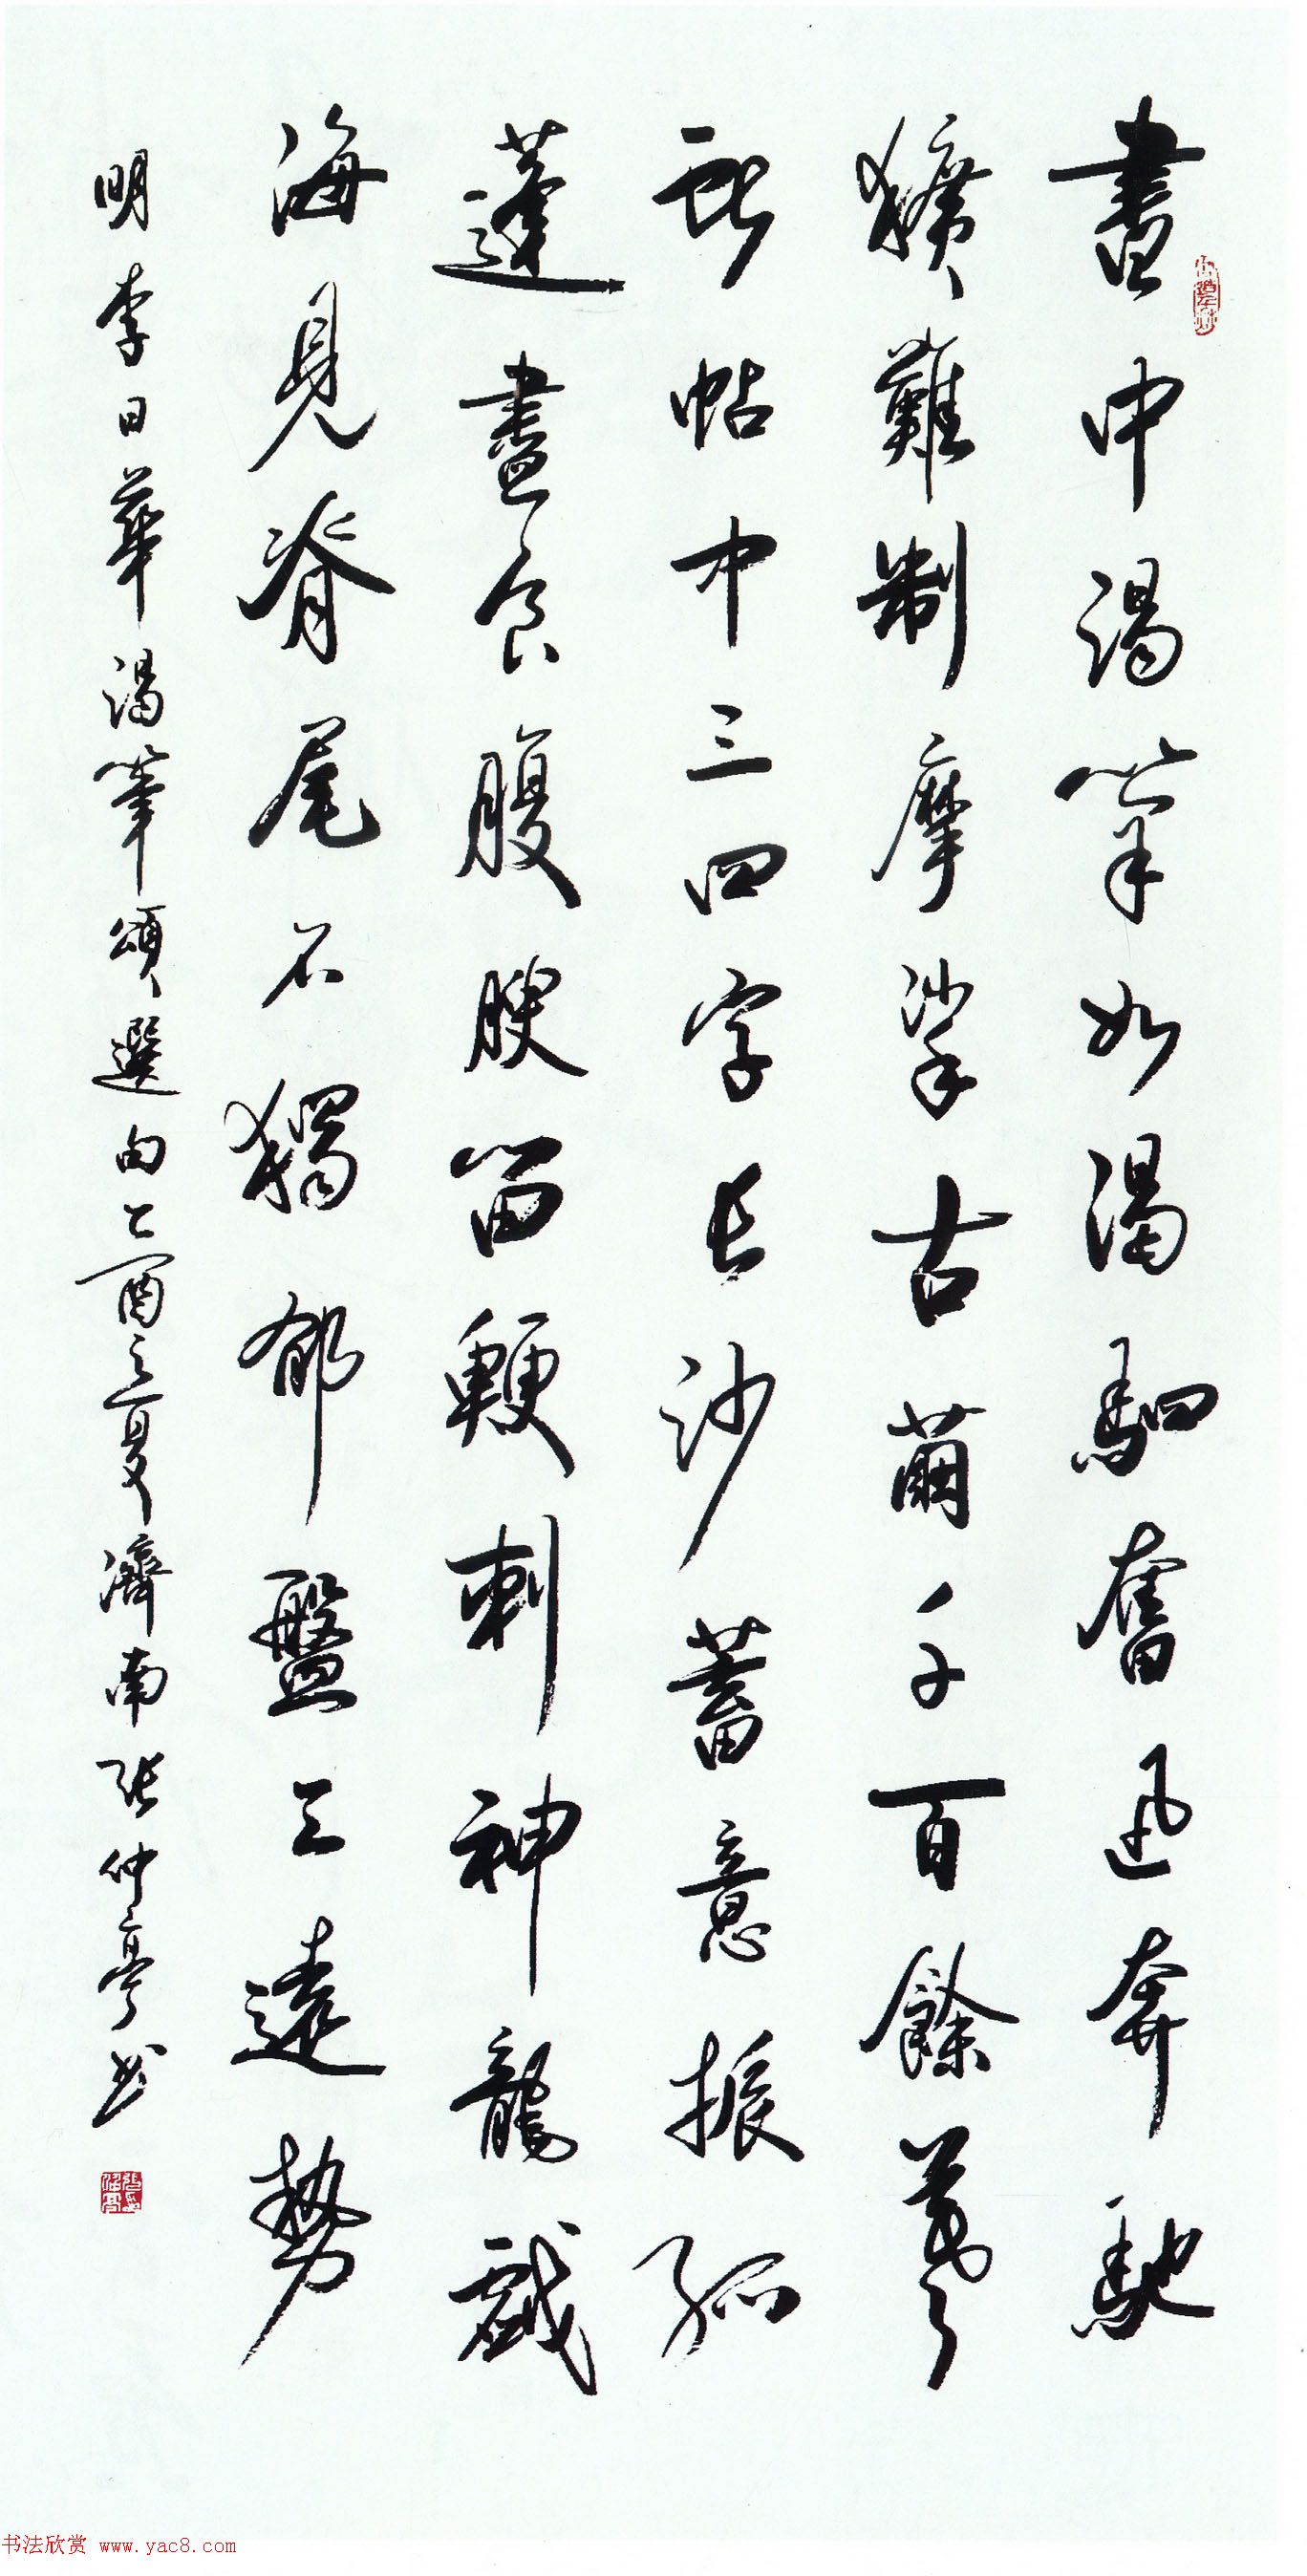 書中渴筆如渴駟奮迅奔馳
獷難制摩挲古繭千百餘羲
獻帖中三四字長沙蓄意振孤
蓬盡食腹腴留鯁刺神龍戲
海見脊尾不獨郁盤遠勢
明李日華渴筆頌選句乙酉之夏濟南張仲亭书
书法欣赏 www.yac8.com